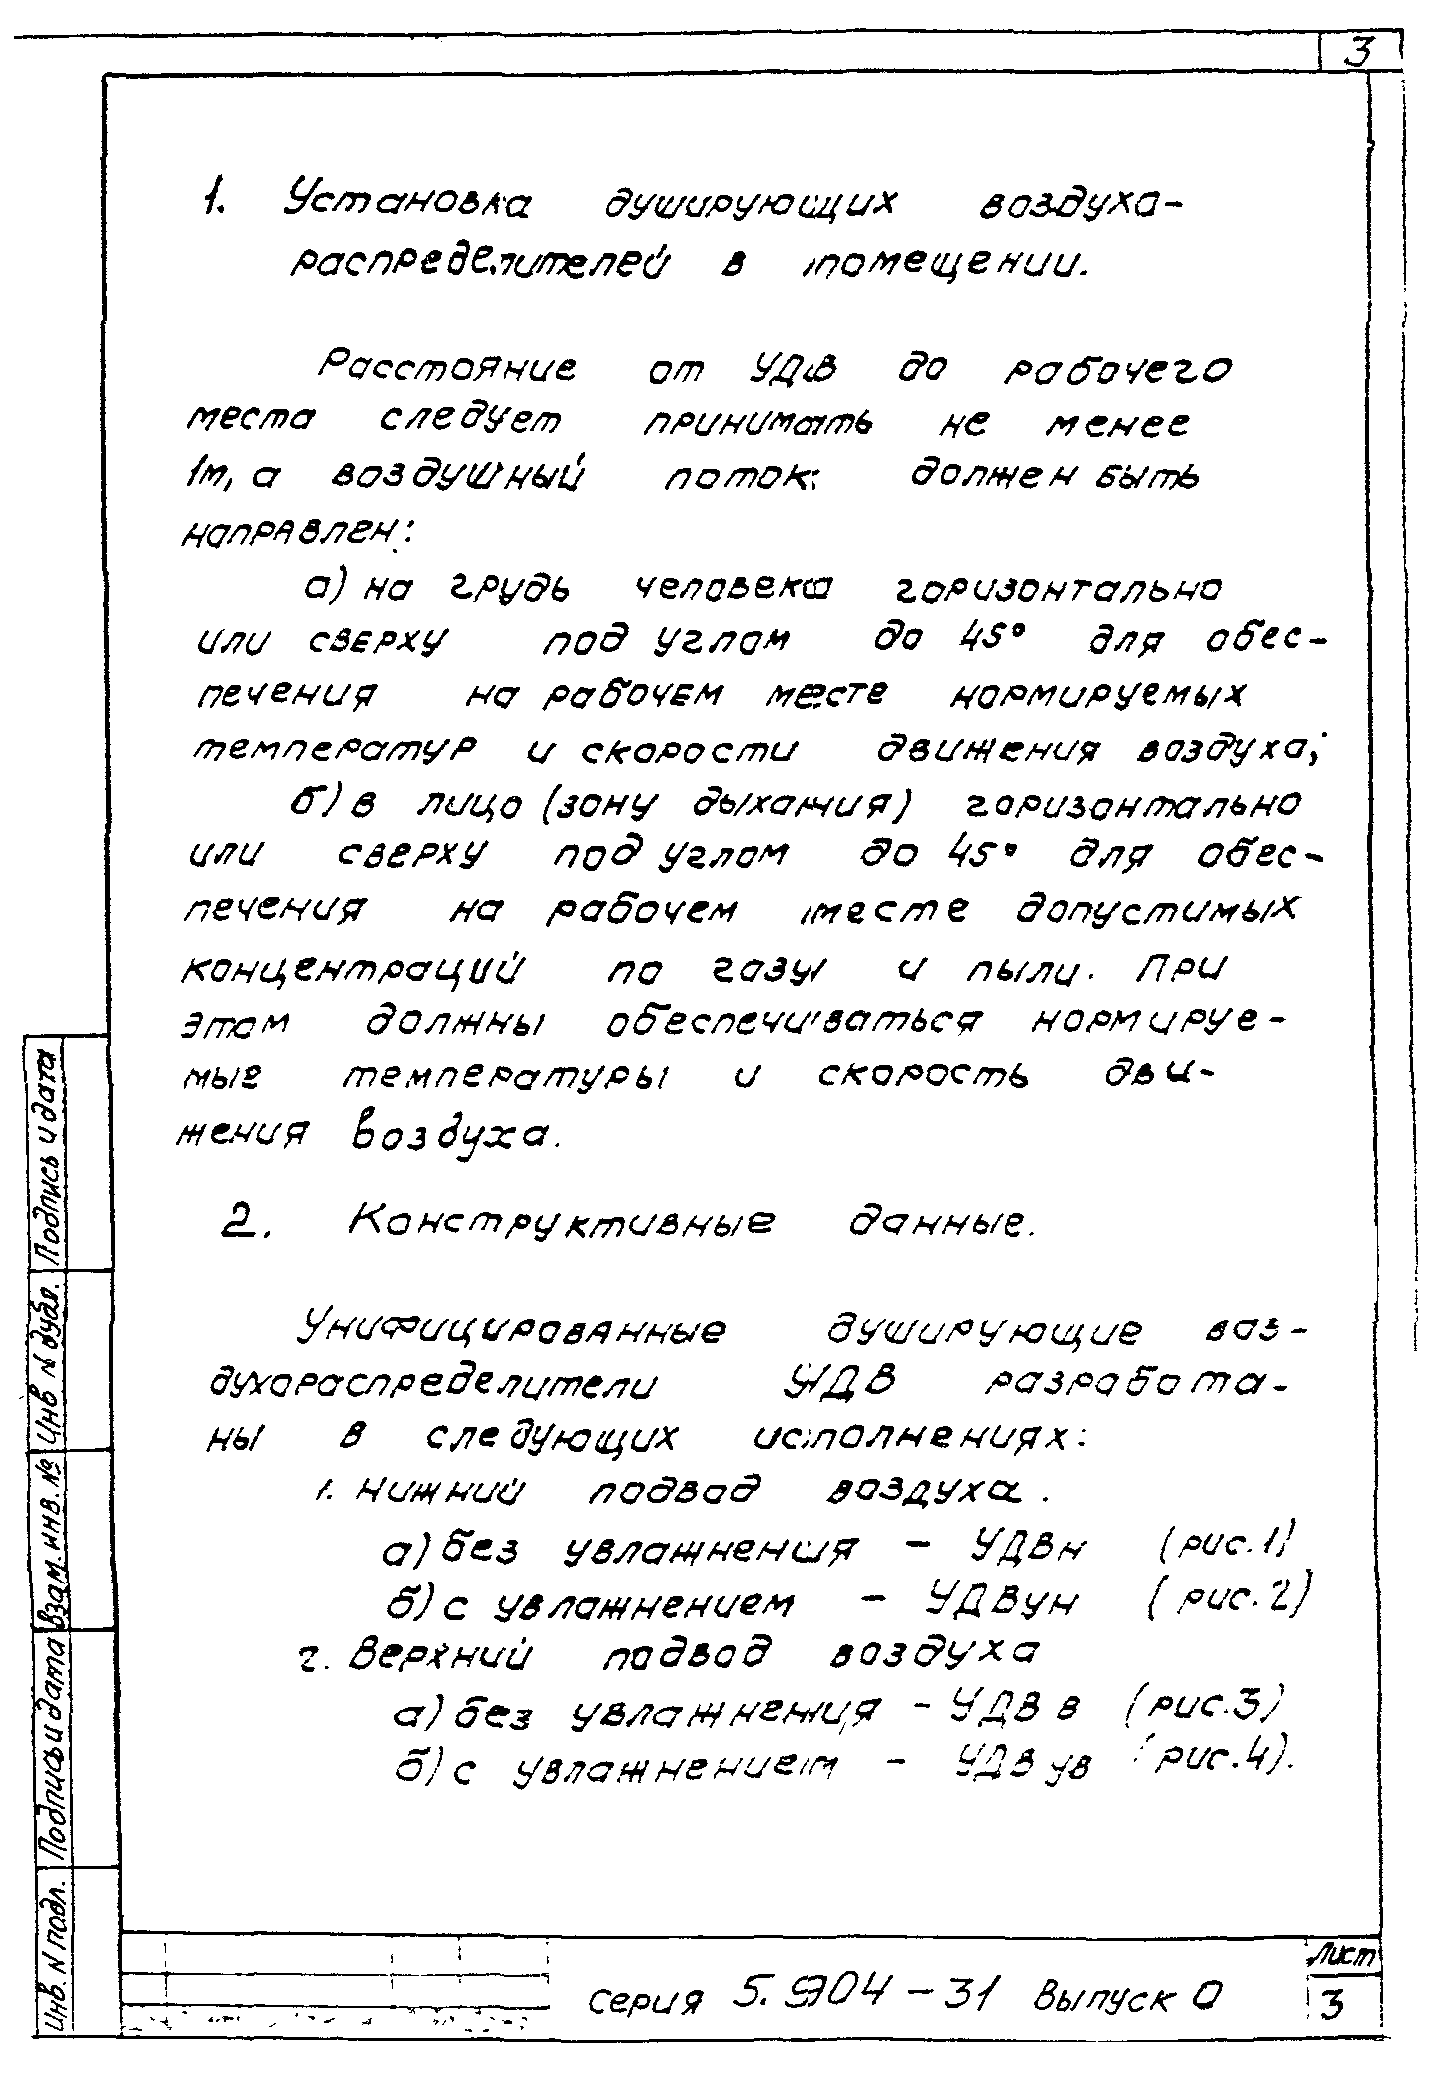 3
1. Установка душирующих воздуха-
распределителей в помещении.
Расстояние от УДВ до рабочего
места следует принимать не менее
1м, а воздушный поток должен быть
направлен:
а) на грудь человека горизонтально
или сверху под углом до 45° для обес-
печения на рабочем месте нормируемых
температур и скорости движения воздуха;
б) в лицо (зону дыхания) горизонтально
или сверху под углом до 45° для обес-
печения на рабочем месте допустимых
концентраций по газу и пыли. При
этом должны обеспечиваться нормируе-
мые температуры и скорость дви-
жения воздуха.
2. Конструктивные данные.
Унифицированные душирующие воз-
духораспределители УДВ разработа-
ны в следующих исполнениях:
1. Нижний подвод воздуха.
а) без увлажнения - УДВн (рис.1)
б) с увлажнением - УДВун (рис.2)
2. Верхний подвод воздуха
а) без увлажнения - УДВв (рис.3)
б) с увлажнением - УДВув (рис.4).
Подпись и дата
Инв N дубл.
Взам. инв. №
Подпись и дата
Инв. N подл.
Серия 5.904-31 Выпуск 0
Лист
3